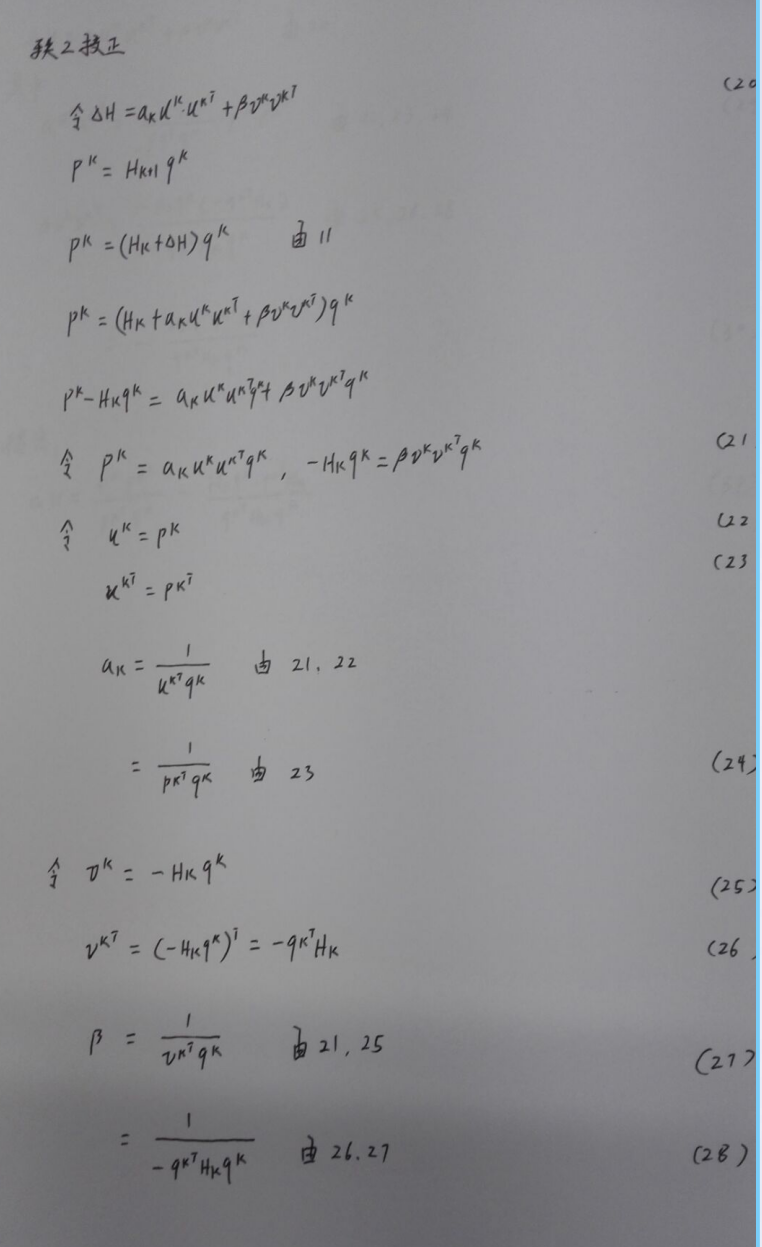 秩2校正
令 ΔH = a_K u^K·u^{K^T} + βv^K v^{K^T} (20
P^K = H_{K+1} q^K
P^K = (H_K + ΔH) q^K 由 11
P^K = (H_K + a_K u^K u^{K^T} + βv^K v^{K^T}) q^K
P^K - H_K q^K = a_K u^K u^{K^T} q^K + βv^K v^{K^T} q^K
令 P^K = a_K u^K u^{K^T} q^K , -H_K q^K = βv^K v^{K^T} q^K (21
令 u^K = P^K (22
u^{K^T} = P^{K^T} (23
a_K = 1/(u^{K^T} q^K) 由 21, 22
= 1/(P^{K^T} q^K) 由 23 (24)
令 v^K = -H_K q^K (25)
v^{K^T} = (-H_K q^K)^T = -q^{K^T} H_K (26)
β = 1/(v^{K^T} q^K) 由 21, 25 (27)
= 1/(-q^{K^T} H_K q^K) 由 26.27 (28)